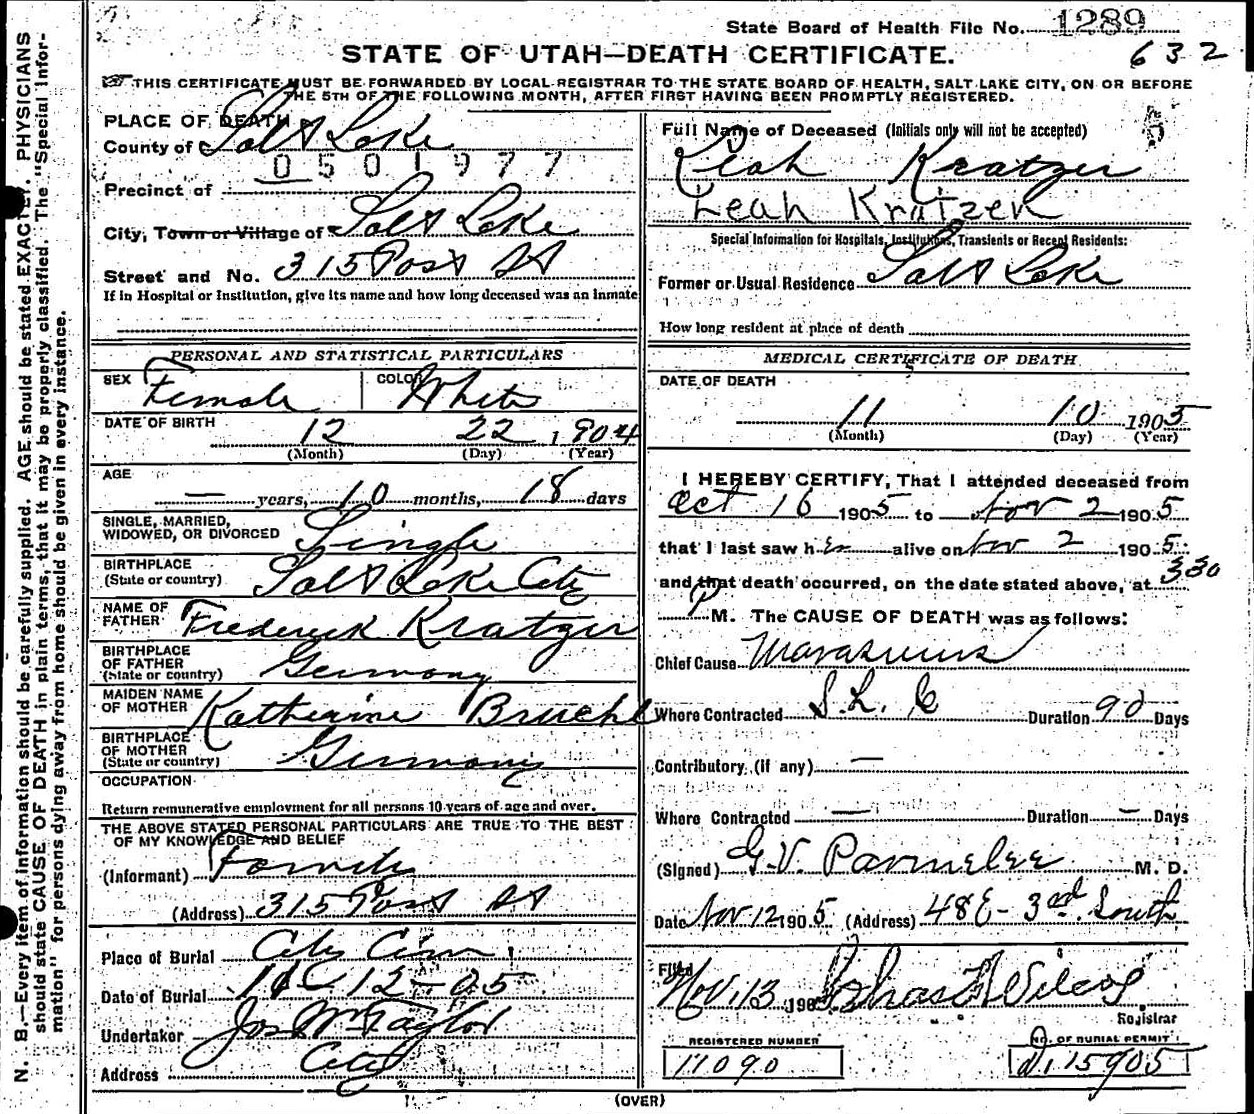 State Board of Health File No. 1289
632
STATE OF UTAH—DEATH CERTIFICATE.
THIS CERTIFICATE MUST BE FORWARDED BY LOCAL REGISTRAR TO THE STATE BOARD OF HEALTH, SALT LAKE CITY, ON OR BEFORE
THE 5TH OF THE FOLLOWING MONTH, AFTER FIRST HAVING BEEN PROMPTLY REGISTERED.
PLACE OF DEATH
County of Salt Lake
0501977
Precinct of
City, Town or Village of Salt Lake
Street and No. 315 Post St
If in Hospital or Institution, give its name and how long deceased was an inmate
PERSONAL AND STATISTICAL PARTICULARS
SEX Female COLOR White
DATE OF BIRTH
12 22, 1904
(Month) (Day) (Year)
AGE
— years, 10 months, 18 days
SINGLE, MARRIED,
WIDOWED, OR DIVORCED Single
BIRTHPLACE
(State or country) Salt Lake City
NAME OF
FATHER Frederick Kratzer
BIRTHPLACE
OF FATHER
(State or country) Germany
MAIDEN NAME
OF MOTHER Katherine Bruehl
BIRTHPLACE
OF MOTHER
(State or country) Germany
OCCUPATION
Return remunerative employment for all persons 10 years of age and over.
THE ABOVE STATED PERSONAL PARTICULARS ARE TRUE TO THE BEST
OF MY KNOWLEDGE AND BELIEF
(Informant) Family
(Address) 315 Post St
Place of Burial City Cem
Date of Burial 12-05
Undertaker Jos Wm Taylor
Address City
Full Name of Deceased (Initials only will not be accepted)
Leah Kratzer
Leah Kratzer
Special Information for Hospitals, Institutions, Transients or Recent Residents:
Former or Usual Residence Salt Lake
How long resident at place of death
MEDICAL CERTIFICATE OF DEATH
DATE OF DEATH
11 10 1905
(Month) (Day) (Year)
I HEREBY CERTIFY, That I attended deceased from
Oct 16 1905 to Nov 2 1905
that I last saw her alive on Nov 2 1905
and that death occurred, on the date stated above, at 330
P M. The CAUSE OF DEATH was as follows:
Chief Cause Marasmus
Where Contracted S. L. C Duration 90 Days
Contributory (if any) —
Where Contracted — Duration — Days
(Signed) G. V. Parmelee M. D.
Date Nov 12 1905 (Address) 48 E - 3rd South
Filed Nov. 13, 190 Chas F Wilcox
Registrar
REGISTERED NUMBER
11090
No. OF BURIAL PERMIT
D. 15905
(OVER)
N. B.—Every item of information should be carefully supplied. AGE should be stated EXACTLY. PHYSICIANS
should state CAUSE OF DEATH in plain terms, that it may be properly classified. The "Special Infor-
mation" for persons dying away from home should be given in every instance.